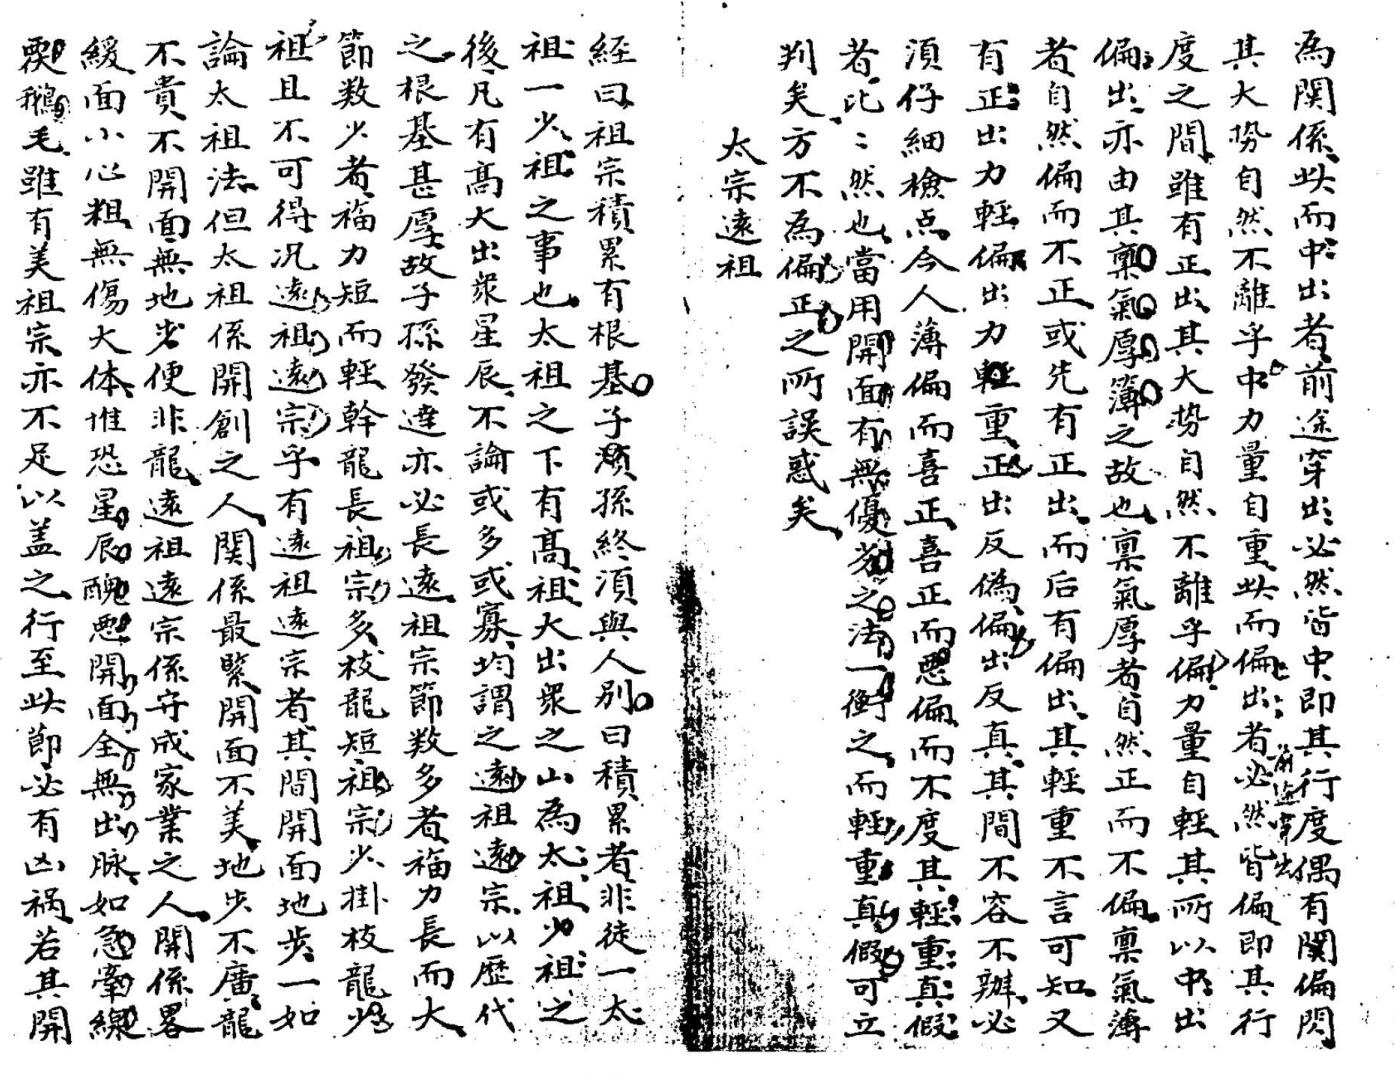 為関係此而中出者前途穿出必然皆中即其行度偶有関偏閃
其大势自然不離乎中力量自重此而偏出者必然皆偏即其行
前途穿出
度之間雖有正出其大势自然不離乎偏力量自輕其所以中出
偏出亦由其稟氣厚薄之故也稟氣厚者自然正而不偏稟氣薄
者自然偏而不正或先有正出而后有偏出其輕重不言可知又
有正出力輕偏出力輕重正出反偽偏出反真其間不容不辦必
須仔細檢点今人薄偏而喜正喜正而惡偏而不度其輕重真假
者比比然也當用開面有無優劣之法一衡之而輕重真假可立
判矣方不為偏正之所誤惑矣
太宗遠祖
経曰祖宗積累有根基子須孫終須與人別曰積累者非徒一太
祖一少祖之事也太祖之下有髙祖大出衆之山為太祖少祖之
後凡有髙大出衆星辰不論或多或寡均謂之遠祖遠宗以歷代
之根基甚厚故子孫發達亦必長遠祖宗節数多者福力長而大
節数少者福力短而輕幹龍長祖宗多枝龍短祖宗少掛枝龍少
祖且不可得况遠祖遠宗乎有遠祖遠宗者其間開面地步一如
論太祖法但太祖係開創之人関係最緊開面不美地步不廣龍
不貴不開面無地步便非龍遠祖遠宗係守成家業之人関係畧
緩面小心粗無傷大体惟恐星辰醜惡開面全無出脉如急牽線
鵝毛雖有美祖宗亦不足以盖之行至此節必有凶禍若其開